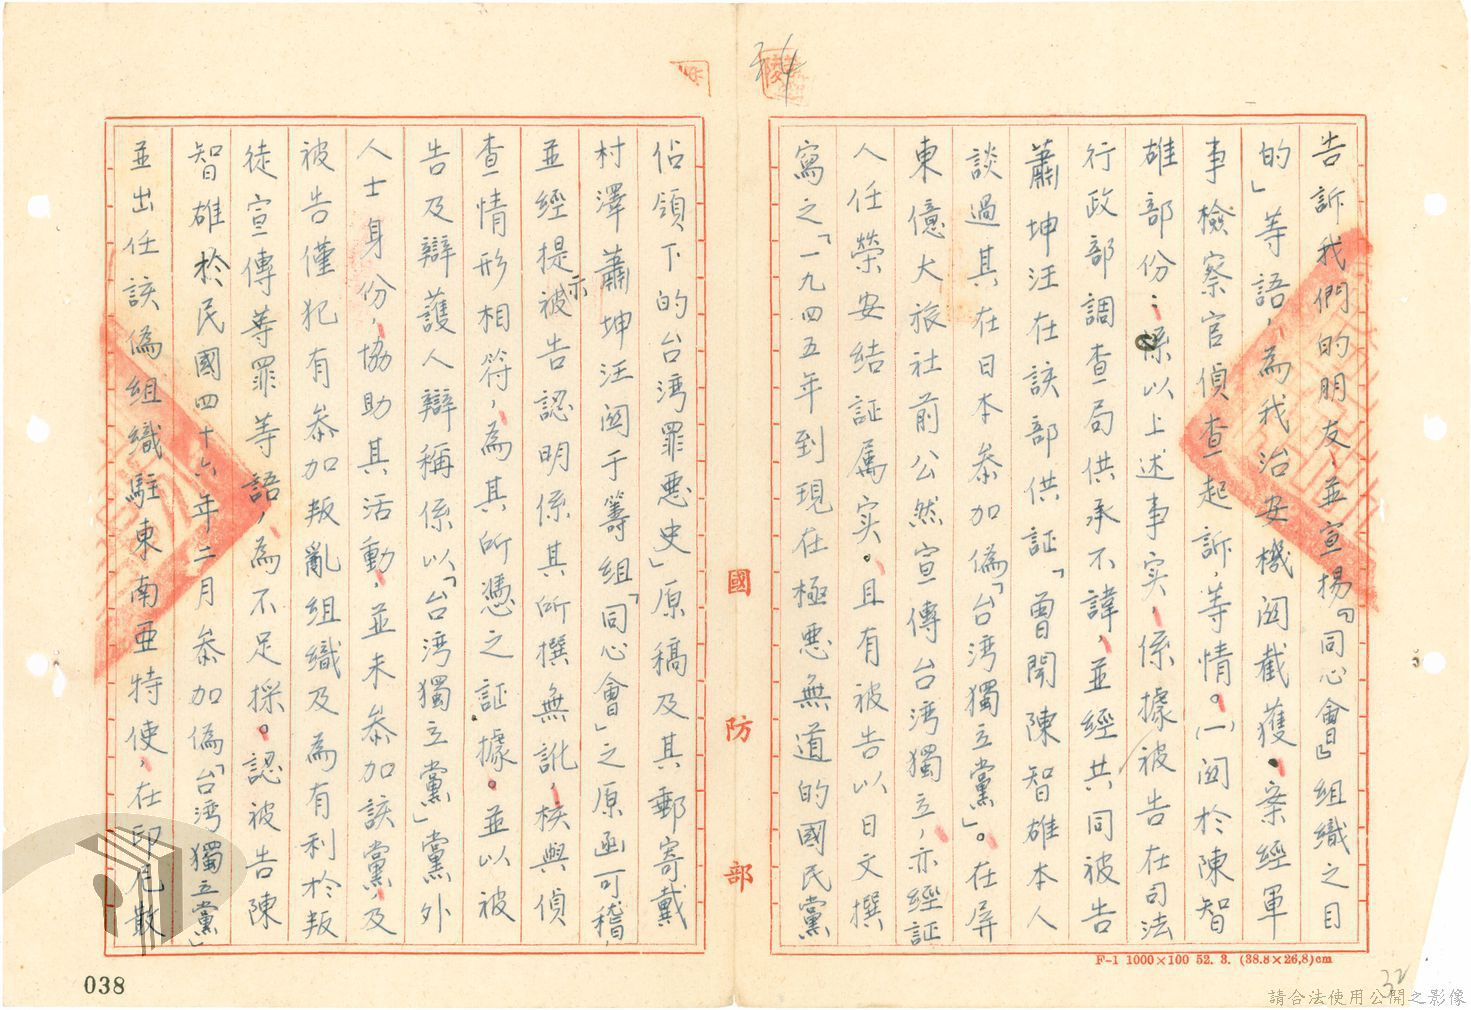 告訴我們的朋友，並宣揚「同心會」組織之目
的」等語，為我治安機関截獲。案經軍
事檢察官偵查起訴，等情。(一)関於陳智
雄部份：係以上述事実，係據被告在司法
行政部調查局供承不諱，並經共同被告
蕭坤汪在該部供証「曾聞陳智雄本人
談過其在日本叅加偽「台湾獨立黨」。在屏
東億大旅社前公然宣傳台湾獨立，亦經証
人任榮安結証属实。且有被告以日文撰
寫之「一九四五年到現在極惡無道的國民黨
佔領下的台湾罪惡史」原稿及其郵寄戴
村澤蕭坤汪関于籌組「同心會」之原函可稽，
並經提示被告認明係其所撰無訛，核與偵
查情形相符，為其所憑之証據。並以被
告及辯護人辯稱係以「台湾獨立黨」黨外
人士身份，協助其活動，並未叅加該黨，及
被告僅犯有叅加叛亂組織及為有利於叛
徒宣傳等罪等語，為不足採。認被告陳
智雄於民國四十六年二月叅加偽「台湾獨立黨」
並出任該偽組織駐東南亚特使，在印尼散
國防部
F-1 1000×100 52. 3. (38.8×26.8)cm
038
32
請合法使用公開之影像